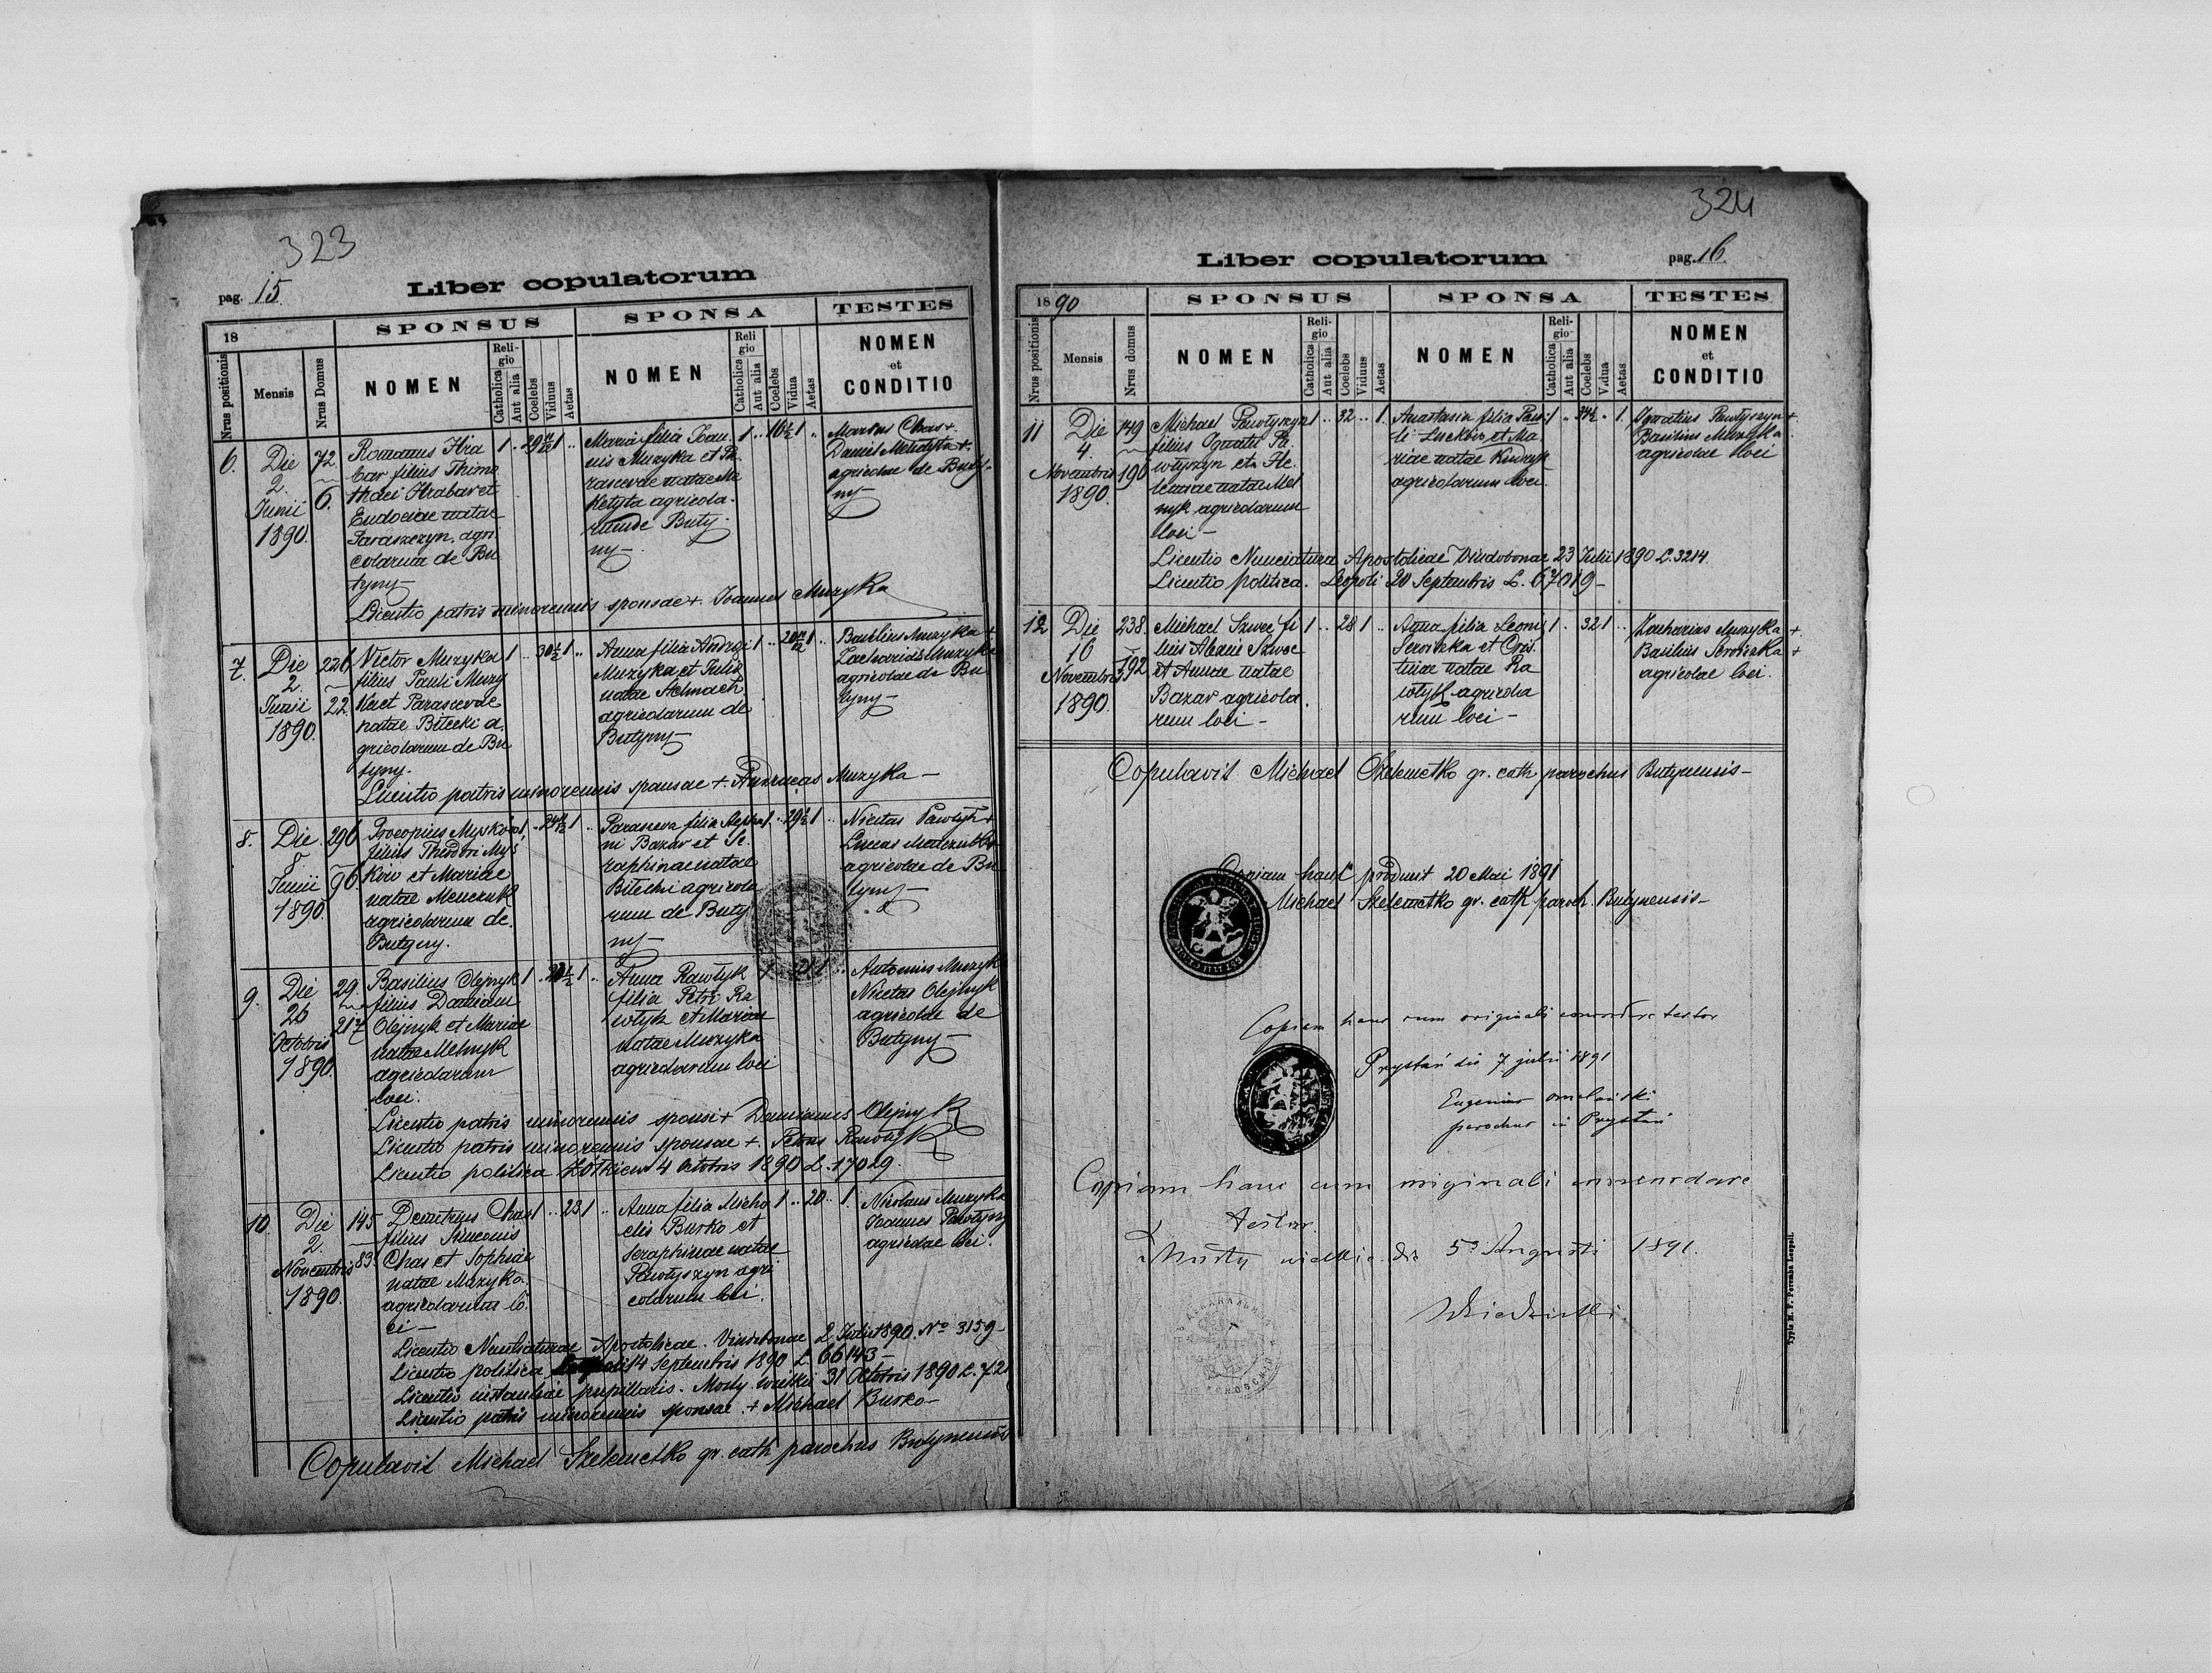 323
pag. 15.
Liber copulatorum
18
SPONSUS
SPONSA
TESTES
Nrus positionis
Mensis
Nrus Domus
NOMEN
Religio
Catholica
Aut alia
Coelebs
Viduus
Aetas
NOMEN
Religio
Catholica
Aut alia
Coelebs
Vidua
Aetas
NOMEN
et
CONDITIO
6.
Die
2.
Junii
1890.
72.
6.
Romanus Hra
bar filius Thimo
thei Hrabar et
Eudociae natae
Paraszczyn, agri
colarum de Bu
tyny-
1 .. 29 1 ..
Maria filia Joan
nis Muzyka et Pa
rascevae natae Me
ketyta agricola
rum de Buty
ny-
1 .. 16½ 1 ..
Marcus Chas +
Daniel Meketyta +
agricolae de Buty-
ny-
Licentio patris minorennis sponsae + Joannes Muzyka
7.
Die
2.
Junii
1890.
226
22.
Victor Muzyka
filius Pauli Muzy
ka et Parascevae
natae Bilecki a
gricolarum de Bu
tyny.
1 .. 30½ 1 ..
Anna filia Andreji
Muzyka et Juliae
natae
agricolarum de
Butyny-
1 .. 20 1 ..
Basilius Muzyka +
Zacharias Muzyka
agricolae de Bu
tyny-
Licentio patris minorennis sponsae + Andreas Muzyka-
8.
Die
8.
Junii
1890.
296
96
Procopius Myśkow
filius Theodori Myś
kow et Mariae
natae Menczuk
agricolarum de
Butyny.
1 .. 24 1 ..
Parasceva filia Stepha
ni Bazar et Se
raphinae natae
Bilecki agricola
rum de Buty
ny-
1 .. 29½ 1 ..
Nicetas Pawlyk +
Lucas
agricolae de Bu
tyny-
9.
Die
26
Octobris
1890.
29.
217
Basilius Olejnyk
filius Damiani
Olejnyk et Mariae
natae Melnyk
agricolarum
loci.
1 ..
Anna Rawłyk
filia Petri Ra
włyk et Mariae
natae Muzyka
agricolarum loci
1 .. 21 1 ..
Antonius Muzyk
Nicetas Olejnyk
agricolae de
Butyny-
Licentio patris minorennis sponsi + Damianus Olejnyk
Licentio patris minorennis sponsae + Petrus Rawłyk
Licentio politica Żółkiew 4 Octobris 1890 L. 17029.
10.
Die
2.
Novembris
1890.
145
83.
Demetrius Chas
filius Simeonis
Chas et Sophiae
natae Muzyka
agricolarum lo
ci-
1 .. 23 1 ..
Anna filia Micha
elis Burko et
Seraphinae natae
Pawłyszyn agri
colarum loci.
1 .. 20 .. 1.
Nicolaus Muzyka
Joannes Pawłyszyn
agricolae loci.
Licentio Nuntiaturae Apostolicae Vindobonae 2 Julii 1890. No 3159-
Licentio politica Leopoli 14 Septembris 1890 L. 66143-
Licentio instantiae pupillaris. Mosty wielkie 31 Octobris 1890 L. 721
Licentio patris minorennis sponsae. + Michael Burko-
Copulavit Michael Szelemetko gr. cath parochus Butynensis
324
Liber copulatorum
pag. 16.
1890
SPONSUS
SPONSA
TESTES
Nrus positionis
Mensis
Nrus domus
NOMEN
Religio
Catholica
Aut alia
Coelebs
Viduus
Aetas
NOMEN
Religio
Catholica
Aut alia
Coelebs
Vidua
Aetas
NOMEN
et
CONDITIO
11
Die
4.
Novembris
1890.
149
190
Michael Pawłyszyn
filius Ignatii Pa
włyszyn et He
lenae natae Mel
nyk agricolarum
loci-
1 .. 32 .. 1.
Anastasia filia Pau
li et Ma
riae natae
agricolarum loci.
1 .. 34½ .. 1.
Ignatius Pawłyszyn +
Basilius Muzyka
agricolae loci
Licentio Nunciatura Apostolicae Vindobonae 23 Julii 1890 L. 3214
Licentio politica. Leopoli 20 Septembris L. 67019-
12
Die
16
Novembris
1890.
238.
192
Michael Szwec fi
lius Alexii Szwec
et Annae natae
Bazar agricola
rum loci-
1 .. 28 1 ..
Anna filia Leonis
Serowka et Cris
tinae natae Ra
włyk agricola
rum loci-
1 .. 32 1 ..
Zacharias Muzyka +
Basilius Serowka +
agricolae loci.
Copulavit Michael Szelemetko gr. cath parochus Butynensis-
Copiam hanc produxit 20 Mai 1891
Michael Szelemetko gr. cath paroch. Butynensis-
Copiam hanc cum originali concordare testor
Prystań die 7 julii 1891
Eugenius
parochus in Prystań
Copiam hanc cum originali concordare
testor.
Mosty wielkie. die 5 Augusti 1891.
Typis K. F. Poremba Leopoli.